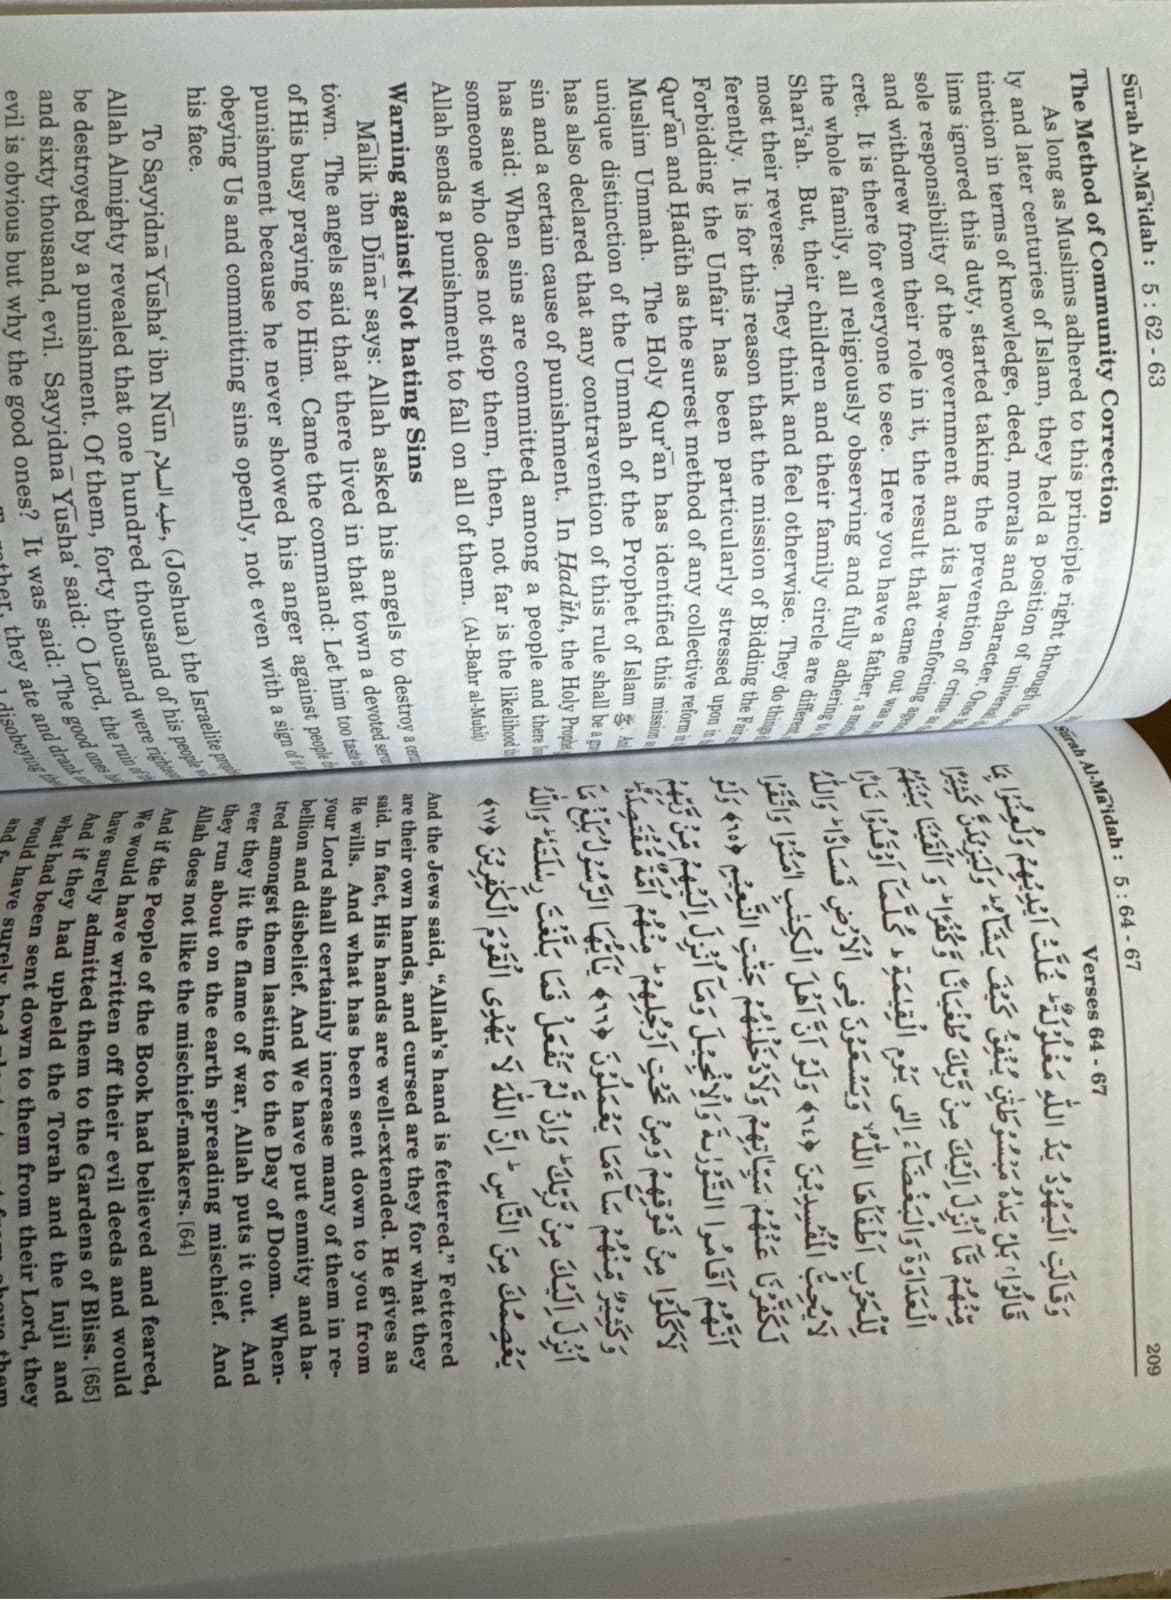 Sūrah Al-Mā'idah : 5 : 62 - 63
The Method of Community Correction
As long as Muslims adhered to this principle right through the
ly and later centuries of Islam, they held a position of universal
tinction in terms of knowledge, deed, morals and character. Once
lims ignored this duty, started taking the prevention of crime
sole responsibility of the government and its law-enforcing
and withdrew from their role in it, the result that came out was
cret. It is there for everyone to see. Here you have a father, a
the whole family, all religiously observing and fully adhering
Sharī'ah. But, their children and their family circle are different
most their reverse. They think and feel otherwise. They do things
ferently. It is for this reason that the mission of Bidding the Fair
Forbidding the Unfair has been particularly stressed upon in
Qur'ān and Ḥadīth as the surest method of any collective reform in
Muslim Ummah. The Holy Qur'ān has identified this mission
unique distinction of the Ummah of the Prophet of Islam ﷺ
has also declared that any contravention of this rule shall be a
sin and a certain cause of punishment. In Ḥadīth, the Holy Prophet
has said: When sins are committed among a people and there
someone who does not stop them, then, not far is the likelihood
Allah sends a punishment to fall on all of them. (Al-Bahr al-Muhit)
Warning against Not hating Sins
Mālik ibn Dīnār says: Allah asked his angels to destroy a
town. The angels said that there lived in that town a devoted
of His busy praying to Him. Came the command: Let him too taste
punishment because he never showed his anger against people
obeying Us and committing sins openly, not even with a sign of
his face.
To Sayyidnā Yūsha‘ ibn Nūn عليه السلام, (Joshua) the Israelite
Allah Almighty revealed that one hundred thousand of his people
be destroyed by a punishment. Of them, forty thousand were
and sixty thousand, evil. Sayyidnā Yūsha‘ said: O Lord, the ruin of
evil is obvious but why the good ones? It was said: The good ones
they ate and drank
disobeying
Sūrah Al-Mā'idah : 5 : 64 - 67 209
Verses 64 - 67
وَقَالَتِ الْيَهُودُ يَدُ اللهِ مَغْلُولَةٌ ط غُلَّتْ أَيْدِيْهِمْ وَلُعِنُوْا بِمَا
قَالُوْا م بَلْ يَدٰهُ مَبْسُوْطَتٰنِ يُنْفِقُ كَيْفَ يَشَآءُ ط وَلَيَزِيْدَنَّ كَثِيْرًا
مِّنْهُمْ مَّآ اُنْزِلَ اِلَيْكَ مِنْ رَّبِّكَ طُغْيَانًا وَّكُفْرًا ط وَاَلْقَيْنَا بَيْنَهُمُ
الْعَدَاوَةَ وَالْبَغْضَآءَ اِلٰى يَوْمِ الْقِيٰمَةِ ط كُلَّمَآ اَوْقَدُوْا نَارًا
لِّلْحَرْبِ اَطْفَاَهَا اللهُ لا وَيَسْعَوْنَ فِى الْاَرْضِ فَسَادًا ط وَاللهُ
لَا يُحِبُّ الْمُفْسِدِيْنَ ﴿٦٤﴾ وَلَوْ اَنَّ اَهْلَ الْكِتٰبِ اٰمَنُوْا وَاتَّقَوْا
لَكَفَّرْنَا عَنْهُمْ سَيِّاٰتِهِمْ وَلَاَدْخَلْنٰهُمْ جَنّٰتِ النَّعِيْمِ ﴿٦٥﴾ وَلَوْ
اَنَّهُمْ اَقَامُوا التَّوْرٰىةَ وَالْاِنْجِيْلَ وَمَآ اُنْزِلَ اِلَيْهِمْ مِّنْ رَّبِّهِمْ
لَاَكَلُوْا مِنْ فَوْقِهِمْ وَمِنْ تَحْتِ اَرْجُلِهِمْ ط مِنْهُمْ اُمَّةٌ مُّقْتَصِدَةٌ ط
وَكَثِيْرٌ مِّنْهُمْ سَآءَ مَا يَعْمَلُوْنَ ﴿٦٦﴾ يٰٓاَيُّهَا الرَّسُوْلُ بَلِّغْ مَآ
اُنْزِلَ اِلَيْكَ مِنْ رَّبِّكَ ط وَاِنْ لَّمْ تَفْعَلْ فَمَا بَلَّغْتَ رِسٰلَتَهٗ ط وَاللهُ
يَعْصِمُكَ مِنَ النَّاسِ ط اِنَّ اللهَ لَا يَهْدِى الْقَوْمَ الْكٰفِرِيْنَ ﴿٦٧﴾
And the Jews said, “Allah’s hand is fettered.” Fettered
are their own hands, and cursed are they for what they
said. In fact, His hands are well-extended. He gives as
He wills. And what has been sent down to you from
your Lord shall certainly increase many of them in re-
bellion and disbelief. And We have put enmity and ha-
tred amongst them lasting to the Day of Doom. When-
ever they lit the flame of war, Allah puts it out. And
they run about on the earth spreading mischief. And
Allah does not like the mischief-makers. [64]
And if the People of the Book had believed and feared,
We would have written off their evil deeds and would
have surely admitted them to the Gardens of Bliss. [65]
And if they had upheld the Torah and the Injil and
what had been sent down to them from their Lord, they
would have surely had